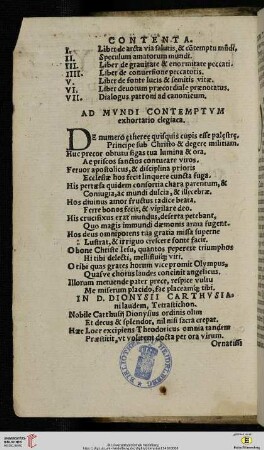 CONTENTA.
I. Liber de arcta via salutis, & cõtemptu mũdi,
II. Speculum amatorum mundi.
III. Liber de grauitate & enormitate peccati.
IIII. Liber de conuersione peccatoris.
V. Liber de fonte lucis & semitis vitæ.
VI. Liber deuotum præcordiale prænotatus.
VII. Dialogus patroni ad canonicum.
AD MVNDI CONTEMPTVM
exhortatio elegiaca.
DE numero æthereę quisquis cupis esse palęstrę,
Principe sub Christo & degere militiam.
Huc precor obtutu figas tua lumina & ora,
Ac priscos sanctos contueare viros.
Feruor apostolicus, & disciplina prioris
Ecclesiæ hos fecit linquere cuncta fuga.
His pertæsa quidem consortia chara parentum, &
Coniugia, ac mundi dulcia, & illecebræ
Hos diuinus amor fructus radice beata.
Ferre bonos fecit, & vigilare deo.
His crucifixus erat mundus, deserta petebant,
Quo magis immundi dæmonis arma fugent.
Hos deus omnipotens tua gratia missa superne
Lustrat, & irriguo crescere fonte facit.
O bone Christe Iesu, quantos peperere triumphos
Hi tibi delecti, mellifluiq; viri.
O tibi quas grates horum vice promit Olympus,
Quasve choris laudes concinit angelicus.
Illorum metuende pater prece, respice vultu
Me miserum placido, fac placeamq; tibi.
IN D. DIONYSII CARTHVSIA-
ni laudem, Tetrastichon.
Nobile Carthusii Dionysius ordinis olim
Et decus & splendor, nil nisi sacra crepat.
Hæc Loer excipiens Theodoricus omnia tandem
Præstitit, vt volitent docta per ora virum.
Ornatissi